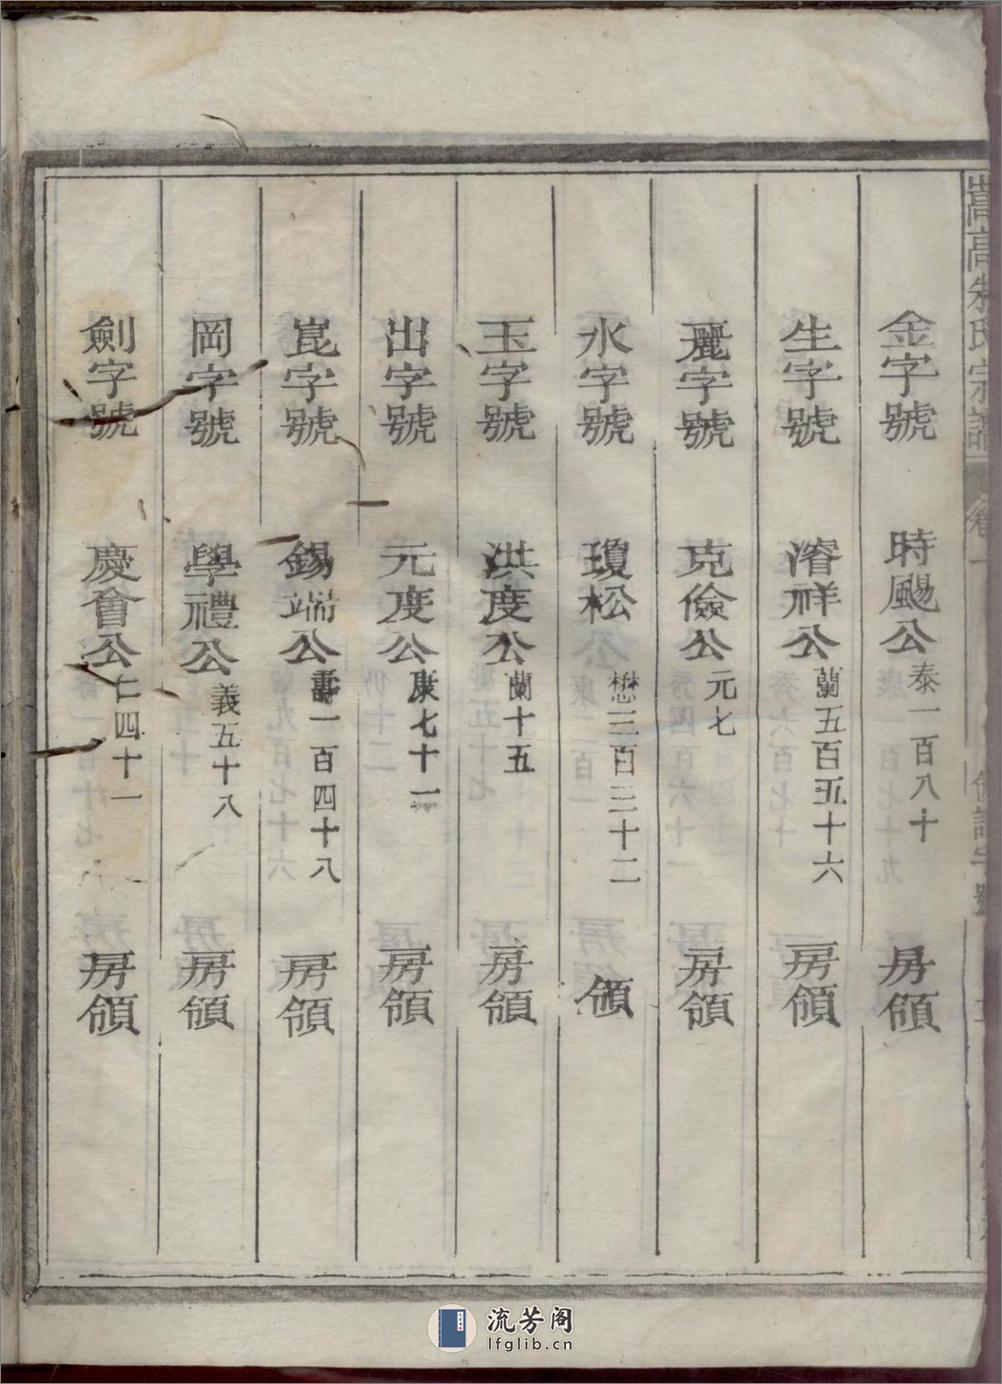 嵩高朱氏宗譜 卷一
金字號 時颺公 泰一百八十 房領
生字號 濬祥公 蘭五百五十六 房領
麗字號 克儉公 元七 房領
水字號 瓊松 懋三百三十二 領
玉字號 洪度公 蘭十五 房領
出字號 元度公 康七十一 房領
崑字號 錫端公 壽一百四十八 房領
岡字號 學禮公 義五十八 房領
劍字號 慶會公 仁四十一 房領
流芳阁
lfglib.cn